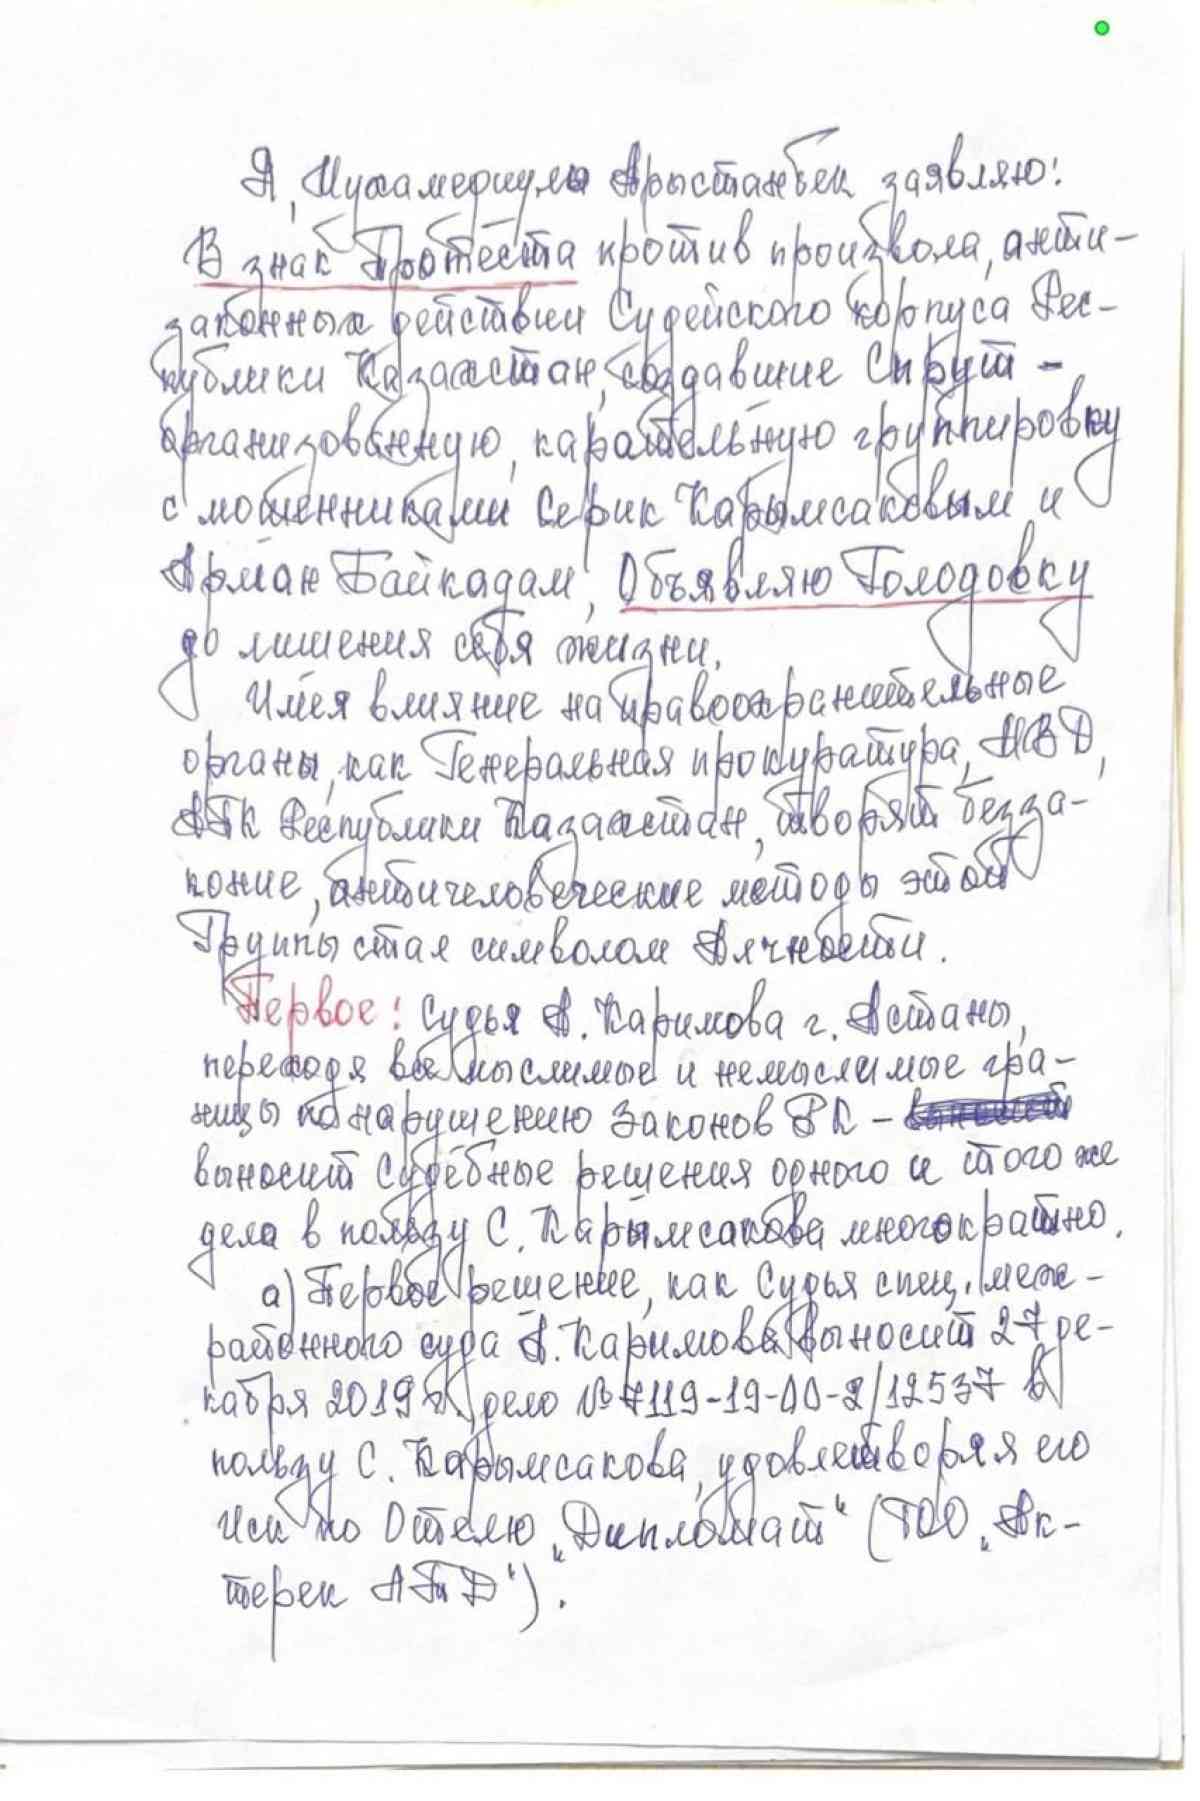 Я, Мухамедиулы Арыстанбек заявляю:
В знак Протеста против произвола, анти-
законных действии Судейского корпуса Рес-
публики Казахстан, создавшие Спрут -
организованную, карательную группировку
с мошенниками Серик Карымсаковым и
Арман Байкадам, Объявляю Голодовку
до лишения себя жизни.
Имея влияние на правоохранительные
органы, как Генеральная прокуратура, МВД,
АПК Республики Казахстан, творят безза-
коние, античеловеческие методы этой
Группы стая символом Алчности.
Первое: Судья А. Каримова г. Астаны,
переходя все мыслимые и немыслимые гра-
ницы по нарушению Законов РК -
выносит Судебные решения одного и того же
дела в пользу С. Карымсакова многократно.
а) Первое решение, как Судья спец. меж-
районного суда А. Каримова выносит 27 де-
кабря 2019 г. дело № 7119-19-00-2/12537 в
пользу С. Карымсакова, удовлетворяя его
Иск по Отелю „Дипломат“ (ТОО „Ак-
терек АПД“).